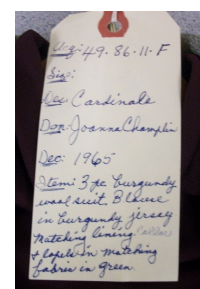 U-g: 49·86·11·F
Size:
Des: Cardinale
Don: Joanna Champlin
Dec: 1965
Item: 3 pc burgundy
wool suit. Blouse
in burgundy jersey
matching lining Collar
& lapels in matching
fabric in green.